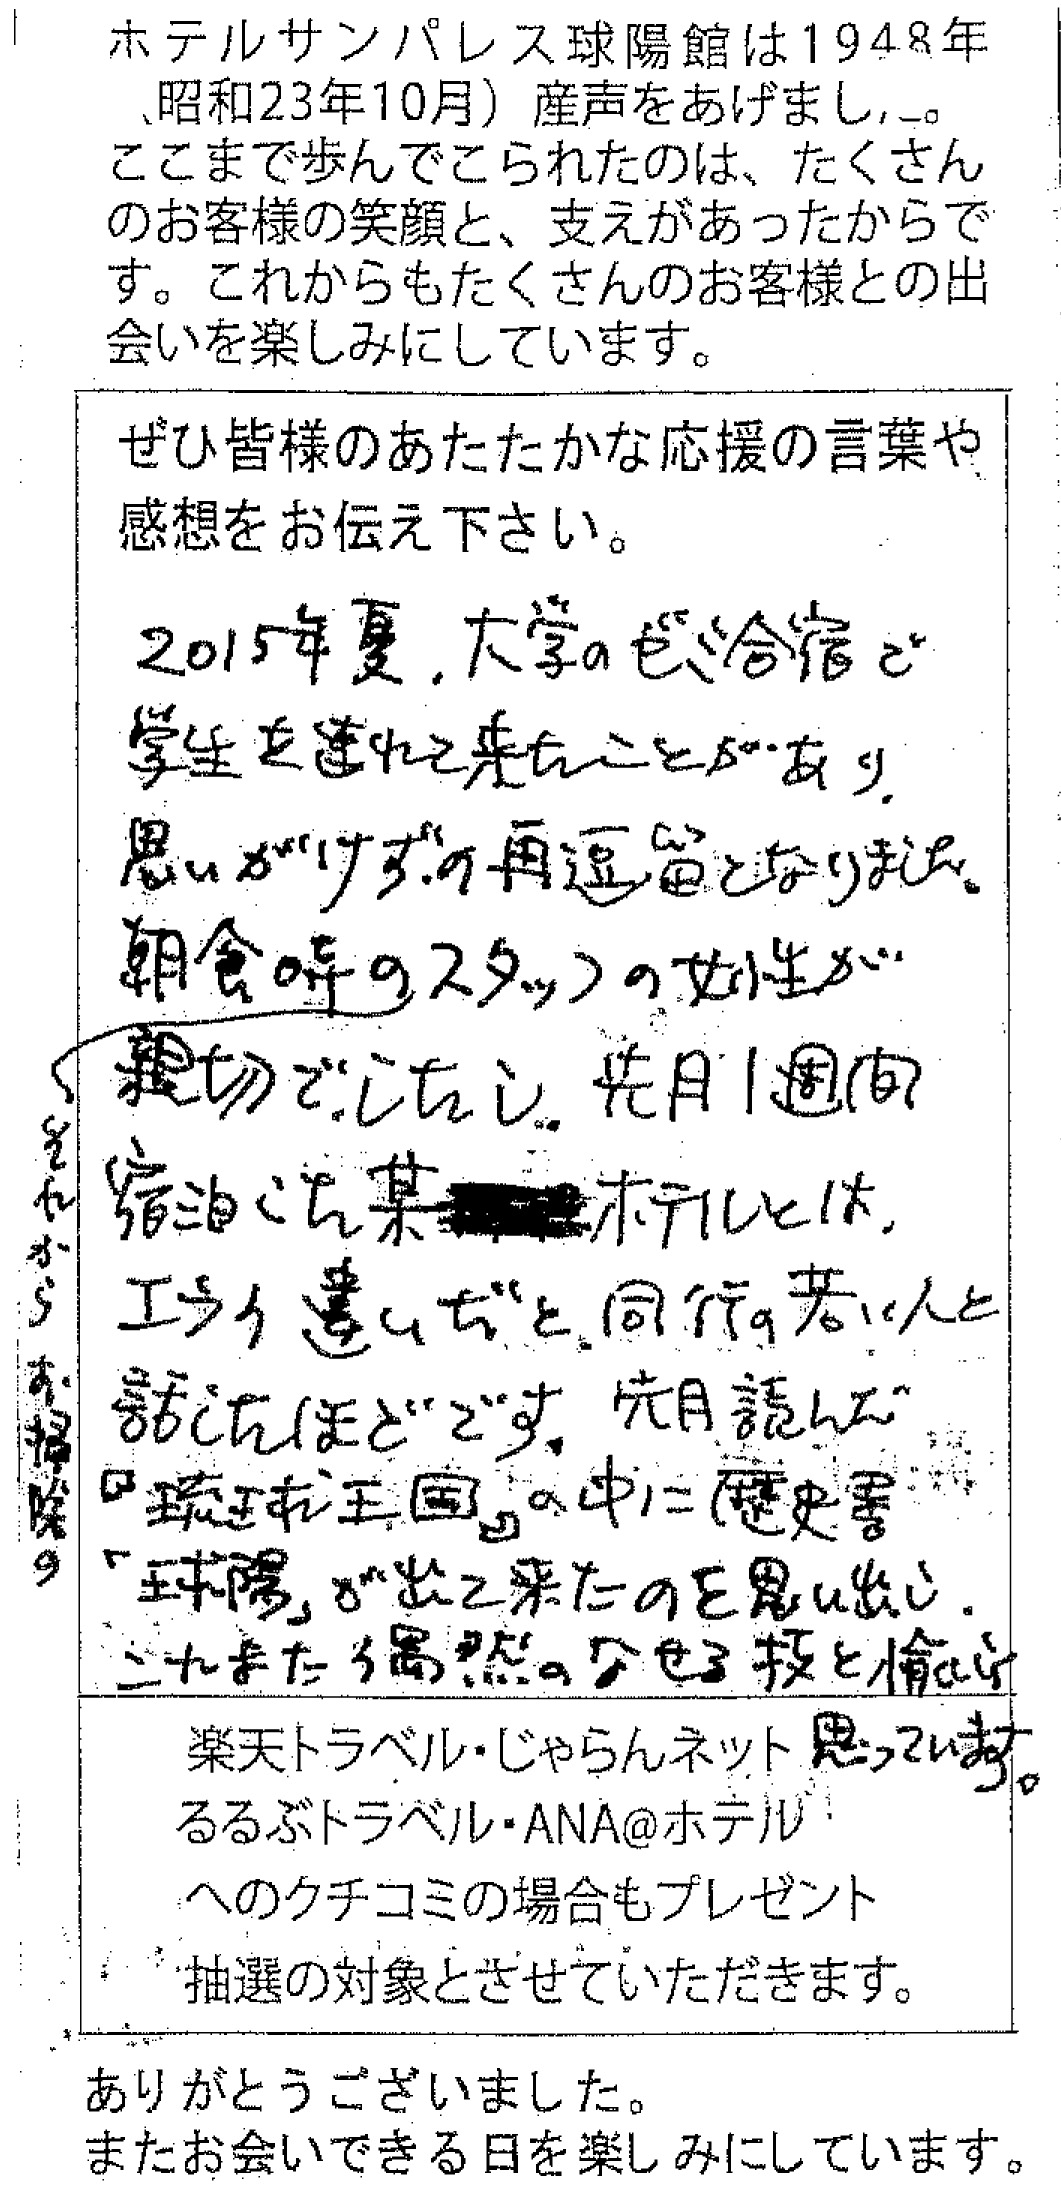 ホテルサンパレス球陽館は1948年
（昭和23年10月）産声をあげました。
ここまで歩んでこられたのは、たくさん
のお客様の笑顔と、支えがあったからで
す。これからもたくさんのお客様との出
会いを楽しみにしています。
ぜひ皆様のあたたかな応援の言葉や
感想をお伝え下さい。
2015年夏、大学のゼミ合宿で
学生を連れて来たことがあり、
思いがけずの再逗留となりました。
朝食時のスタッフの女性が
親切でしたし、先月1週間
宿泊した某ホテルとは、
エライ違いだと、同行の若い人と
話したほどです。先月読んだ
『琉球王国』の中に歴史書
「球陽」が出て来たのを思い出し、
これまた偶然のなせる技と愉しく
思っています。
それから お掃除の
楽天トラベル・じゃらんネット
るるぶトラベル・ANA@ホテル
へのクチコミの場合もプレゼント
抽選の対象とさせていただきます。
ありがとうございました。
またお会いできる日を楽しみにしています。